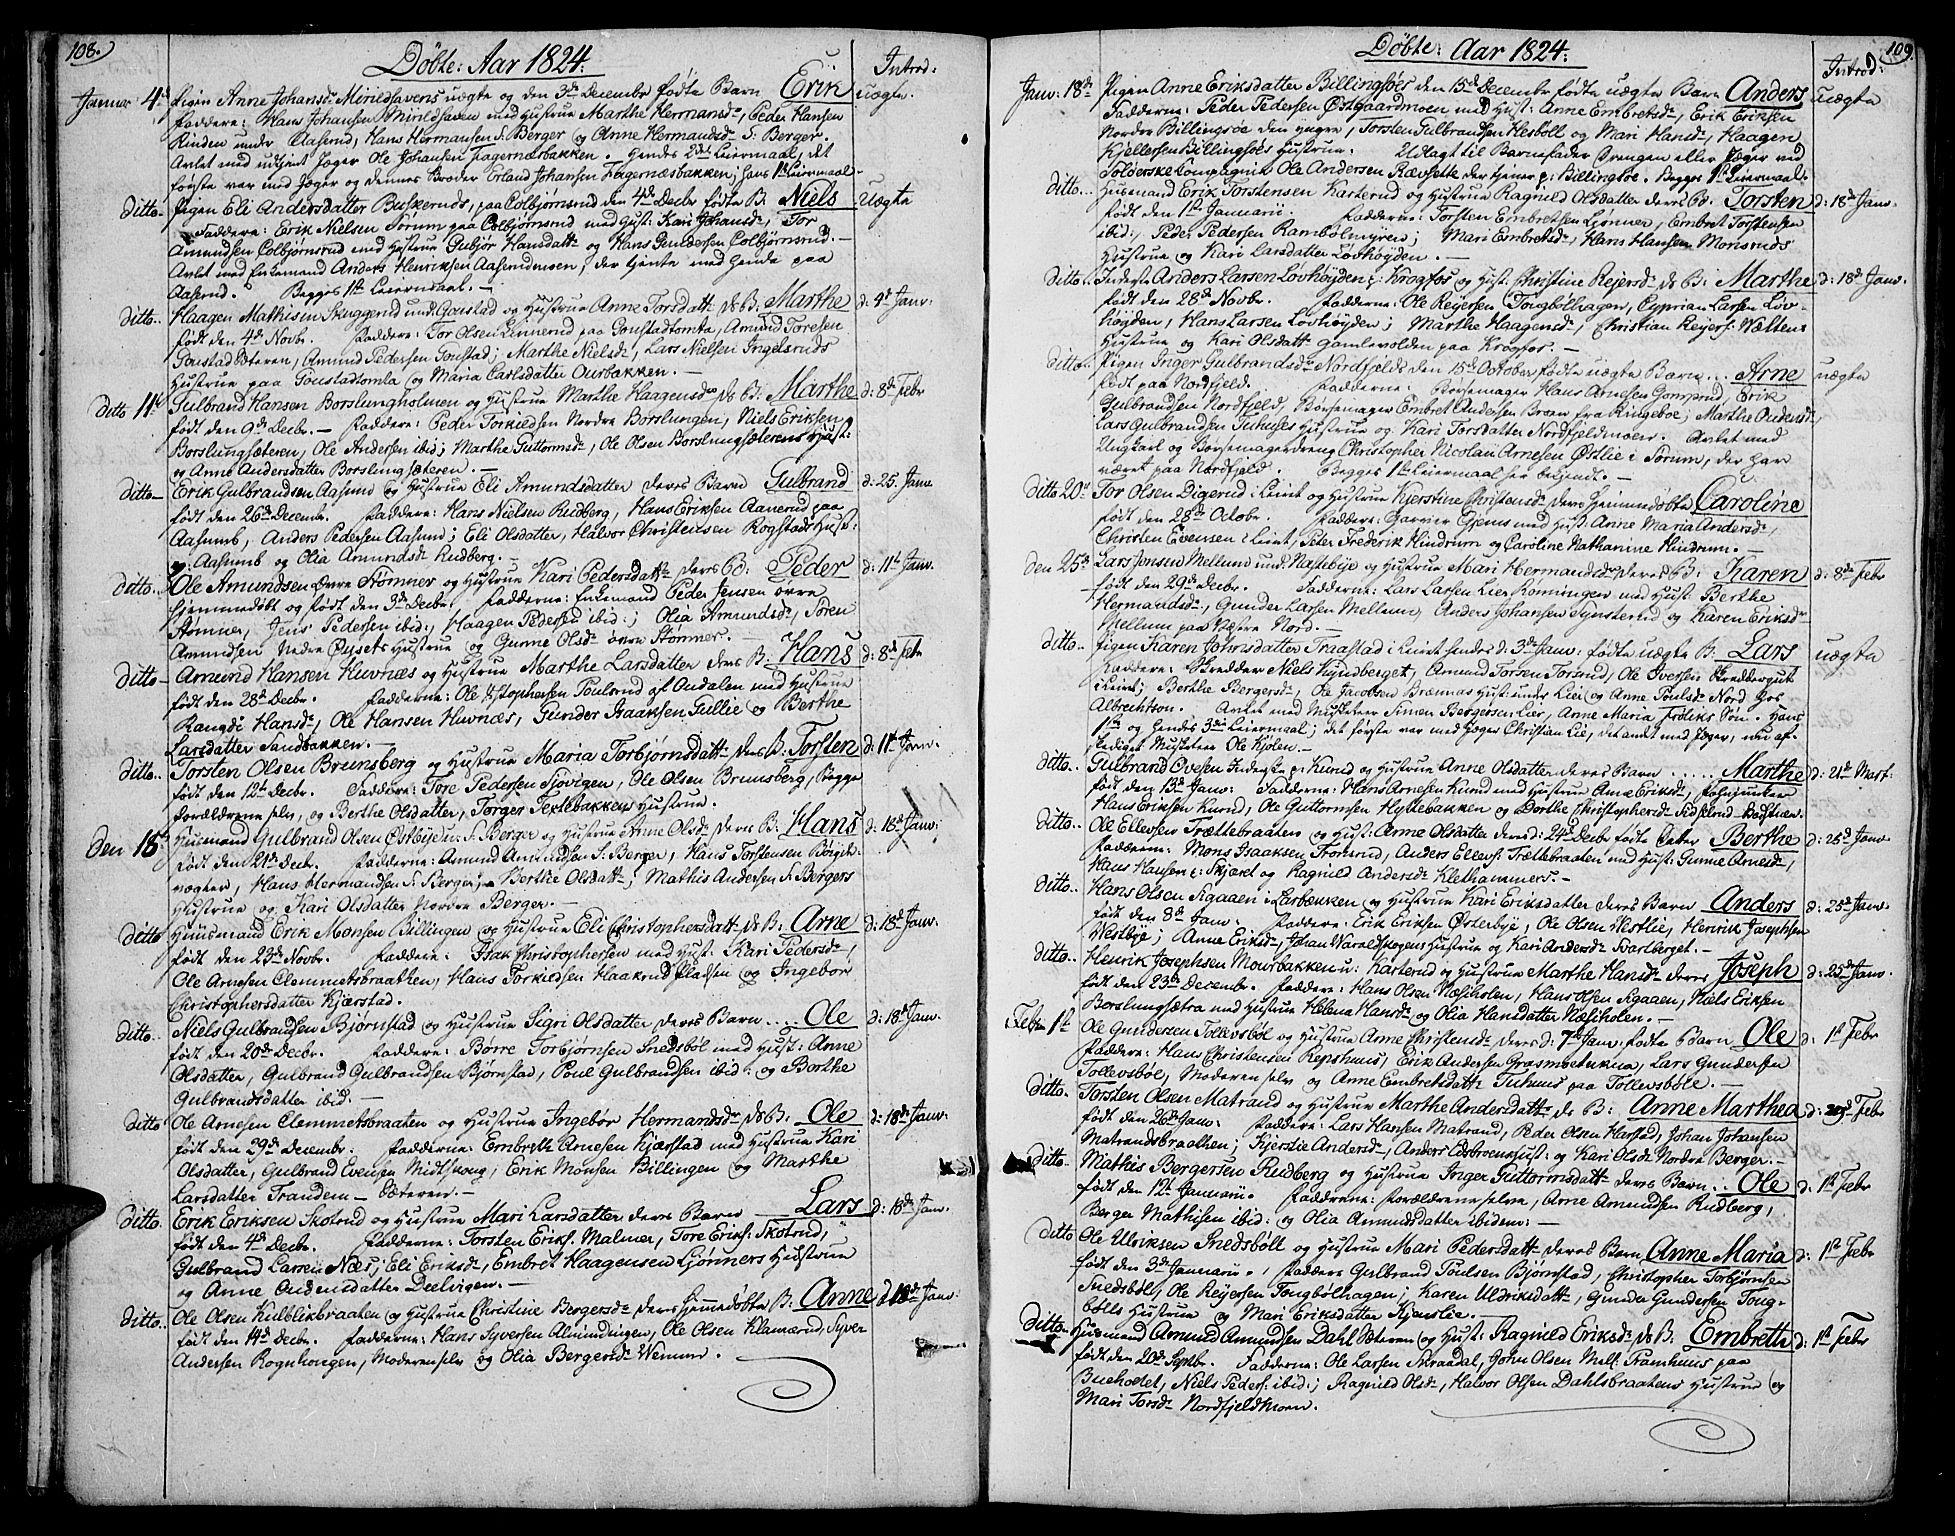 108.
Döbte: Aar 1824.
Introd:
Januar 4d Pigen Anne Johansd: Mirildsavens uægte og den 3d Decembr födte Barn Erik uægte.
Faddere: Hans Johansen Mirildsaven med Hustrue Marthe Hermansd:, Peder Hansen
Rinden under Aaserud, Hans Hermansen S: Berger og Anne Hermansd: S: Berger.
Avlet med udtjent Jæger Ole Johansen Fagernæsbakken. Hendes 2det Leiermaal, det
første var med Jæger og dennes Broder Erland Johansen Fagernæsbakken; hans 1ste Leiermaal.
ditto Pigen Eli Andersdatter Buskeruds, paa Colbjørnsrud den 4de Decbr födte B: Niels uægte
Faddere: Erik Nielsen Sørum paa Colbjørnsrud med Hust: Kari Johansd:, Tor
Amundsen Colbjørnsrud med Hustrue Gubjør Hansdatt: og Hans Guldersen Colbjørnsrud.
Avlet med Enkemand Anders Henriksen Aaserudmoen, der tjente med hende paa
Aaserud. Begges 1ste Leiermaal.
ditto.. Haagen Mathisen Skuggerud und: Gaustad og Hustrue Anne Torsdatt: Ds B: Marthe d: 4d Janv:
födt den 4d Novbr. Faddere: Tor Olsen Linnerud paa Goustadtomta, Amund Toresen
Goustad Öteren, Amund Pedersen Goustad; Marthe Nielsd:, Lars Nielsen Ingelsruds
Hustrue paa Goustadtomta og Maria Carlsdatter Ourbakken.
Ditto 11t Gulbrand Hansen Borslungholmen og Hustrue Marthe Haagensd: Ds B: Marthe d: 8d Febr
födt den 9d Decbr. Faddere: Peder Torkildsen Nordre Borslungen, Niels Eriksen
Borslungsæteren, Ole Andersen ibid; Marthe Guttormsd:, Ole Olsen Borslungsæterens Hust:
og Anne Andersdatter Borslungsæteren.
ditto Erik Gulbrandsen Aasund og Hustrue Eli Amundsdatter deres Barn Gulbrand d: 25. Janv
födt den 26d Decembr. Faddere: Hans Nielsen Rudberg, Hans Eriksen Aanerud paa
Aasumb, Anders Pedersen Aasund; Eli Olsdatter, Halvor Christensen Rogstads Hust:
p: Aasumb og Olia Amundsd: Rudberg.
ditto.. Ole Amundsen övre Stömner og Hustrue Kari Pedersdatt: deres B: Peder d: 11t Janv:
hjemmedöbt og födt den 3d Decbr. Faddere: Enkemand Peder Jensen övre
Stömner, Jens Pedersen ibid:, Haagen Pedersen ibid:; Olia Amundsd:, Søren
Amundsen Nedre Öysets Hustrue og Gunne Olsd: övre Stömner.
ditto Amund Hansen Huvnæs og Hustrue Marthe Larsdatter deres B: Hans d: 8d Febr
födt den 28d Decbr. Faddere: Ole Xstophersen Poulsrud af Audalen med Hustrue
Rangdi Hansd:, Ole Hansen Huvnæs, Gunder Isaaksen Gullie og Berthe
Larsdatter Sandbakken.
ditto.. Torsten Olsen Brunsberg og Hustrue Maria Torbjørnsdatt: deres B: Torsten d: 11t Janv:
födt den 12t Decbr. Faddere: Tore Pedersen Sjøvigen, Ole Olsen Brunsberg, begge
Forældrene selv, og Berthe Olsdatter, Torger Textebakkens Hustrue.
Den 18d Huusmand Gulbrand Olsen Östbye u: S: Berger og Hustrue Anne Olsd: deres B: Hans d: 18d Janv:
födt den 21d Decbr. Faddere: Amund Amundsen S. Berger, Hans Torstensen
vogter, Hans Hermandsen S: Berger; Berthe Olsdatt:, Mathis Andersen S: Bergers
Hustrue og Kari Olsdatter Nordre Berger.
ditto Huusmand Erik Monsen Billingen og Hustrue Eli Christophersdatt: ds B: Arne d: 18d Janv:
födt den 23d Novbr. Faddere: Isak Christophersen med Hust: Kari Pedersd:,
Ole Arnesen Clemmetsbraathen, Hans Torkildsen Haakrud Pladsen og Ingebor
Christophersdatter Kjærstad.
ditto.. Niels Gulbrandsen Bjørnstad og Hustrue Sigri Olsdatter deres Barn .... Ole d: 18d Janv.
födt den 20d Decbr. Faddere: Börre Torbjørnsen Snedsböl med Hust: Anne
Olsdatter, Gulbrand Gulbrandsen Bjørnstad, Poul Gulbrandsen ibid: og Berthe
Gulbrandsdatter ibid.
ditto Ole Arnesen Clemmetsbraaten og Hustrue Ingebor Hermandsd: ds B: Ole d: 18d Janv:
födt den 29d Decembr. Faddere: Embrett Arnesen Kjærstad med Hustrue Kari
Olsdatter, Gulbrand Evensen Midtskoug, Erik Monsen Billingen og Marthe
Larsdatter Trandem-Öeteren.
ditto. Erik Eriksen Skotrud og Hustrue Mari Larsdatter deres Barn Lars d: 18d Janv.
födt den 4d Decbr. Faddere: Torsten Eriks: Malmer, Tore Eriks: Skotrud,
Gulbrand Larsen Næs; Eli Eriksd:, Embret Haagensen Ljönners Hustrue
og Anne Audensdatter Deelingen.
ditto.. Ole Olsen Kulblikbraaten og Hustrue Christine Bergersd: deres hjemmedöbte B: Anne d 18d Janv:
födt den 14d Decbr. Faddere: Hans Syversen Almindingen, Ole Olsen Klamærud, Syver
Andersen Rognhougen, Moderen selv og Olia Bergersd: Wemmer.
109.
Döbte: Aar 1824:
Introd:
Janv: 18d Pigen Anne Eriksdatter Billingsöes den 15d Decembr födte uægte Barn Anders uægte
Fadderne: Peder Pedersen Östgaardmoen med Hust: Anne Embretsd:, Erik Eriksen
Nordre Billingsöe den yngre, Torsten Gulbrandsen Hesböll og Mari Hansd:, Haagen
Kjellersen Billingsöes Hustrue. Udlagt til Barnefader Drengen eller Jæger ved
Solörske Compagnie Ole Andersen Rævsætte der tjener p: Billingsöe. Begges 1ste Leiermaal.
ditto.. Huusmand Erik Torstensen Karterud og Hustrue Ragnild Olsdatter deres B: Torsten d: 18d Janv.
födt den 1st Januarii. Faddere: Torsten Embretsen Ljönner, Embret Torstensen
ibid:, Peder Pedersen Rambölmyren; Mari Embretsd:, Hans Hansen Monsruds
Hustrue og Kari Larsdatter Lövhöyden.
ditto.. Inderste Anders Larsen Lövhöyden p: Krogfos og Hust: Christine Reiersd: ds B: Marthe d: 18d Janv.
födt den 28d Novbr. Faddere: Ole Reiersen Tongbölhagen, Cyprian Larsen Löv-
höyden, Hans Larsen Lövhöyden; Marthe Haagensd:, Christian Reiers: Wættens
Hustrue og Kari Olsdatt: Gamlevolden paa Krogfos.
ditto. Pigen Inger Gulbrandsd: Nordfjelds den 15d October födte uægte Barn .. Arne uægte
födt paa Nordfjeld. Faddere: Börsemager Hans Arnesen Gomprud, Erik
Gulbrandsen Nordfjeld, Börsemager Embret Andersen Broen fra Ringeboe; Marthe Audensd:,
Lars Gulbrandsen Tuhuses Hustrue og Kari Torsdatter Nordfjeldmoen. Avlet med
Ungkarl og Börsemagerdreng Christopher Nicolai Arnesen Östlie i Sørum, der har
været paa Nordfjeld. Begges 1ste Leiermaal saa bekjendt.
ditto 20d Tor Olsen Digerud i Leiret og Hustrue Kjerstine Christensd: deres hjemmedöbte Caroline
födt den 28d Octobr. Faddere: Garver Gjems med Hust: Anne Maria Andersd:,
Christen Evensen i Leiret, Peter Frederik Hindrum og Caroline Nathanine Hindrum.
den 25d Lars Jensen Mellum und: Næstebye og Hustrue Mari Hermandsd: deres B: Karen d: 8d Febr
födt den 29d Decbr. Faddere: Lars Larsen Lier Komningen med Hust: Berthe
Hermandsd:, Gunder Larsen Mellum, Anders Johansen Synsterud og Karen Eriksd:
Mellum paa Næstre Nord.
ditto.. Pigen Karen Johrisdatter Traastad i Leiret hendes d: 3d Janv: födte uægte B: Lars uægta
Faddere: Skredder Niels Kyndberget, Amund Torsen Torsrud, Ole Iversen Skreddergut
i Leiret; Berthe Bergersd:, Ole Jacobsen Brænnas Hust: under Lier og Anne Poulsd: Nord hos
Albrechtson. Avlet med Musketer Simen Bergersen Lier, Anne Maria Fröliks Sön. Hans
1st og hendes 3die Leiermaal; det første var med Jæger Christian Lie, det andet med Jæger, nu af-
skediget Musketere Ole Kjölen.
ditto.. Gulbrand Ovesen Inderste p: Kurud og Hustrue Anne Olsdatter deres Barn ..... Marthe d: 21d Mart:
födt den 13d Janv: Fadderne: Hans Arnesen Kurud med Hustrue Anne Eriksd:,
Hans Eriksen Kurud, Ole Guttormsen Hyttebakken og Dorthe Christophersd: Sidselrud Badstuen.
ditto.. Ole Ellevsen Trættebraaten og Hust: Arne Olsdatter deres d: 24d Decbr födte Datter Berthe d: 25d Janv
Fadderne: Mons Isaaksen Tromsrud, Anders Ellevs: Trættebraaten med Hust: Gunne Arnesd:,
Hans Hansen p: Skjæret og Ragnild Andersd: Klethammers.
ditto.. Hans Olsen Sigaaen i Larbækken og Hustrue Kari Eriksdatter deres Barn Anders d: 25d Janv.
födt den 8d Janv: Faddere: Erik Eriksen Österbye, Ole Olsen Westlie, Henrik Josephsen
Westbye; Anne Eriksd:, Johan Waraldskogens Hustrue og Kari Andersd: Svartberget.
ditto.. Henrik Josephsen Mourbakken u: Karterud og Hustrue Marthe Hansd: deres Joseph d: 25d Janv.
födt den 23d Decembr. Faddere: Hans Olsen Næsholen, Hans Olsen Sigaaen, Niels Eriksen
Borslungsætra med Hustrue Helena Hansd: og Olia Hansdatter Næsholen.
Febr 1st Ole Gundersen Tollevsböl og Hustrue Anne Christensd: deres d: 7d Janv. födte Barn Ole d: 1st Febr
Faddere: Hans Christensen Repshuus, Erik Andersen Grasmoetuhua, Lars Gundersen
Tollevsböl, Moderen selv og Anne Embretsdatt: Tuhuus paa Tollevsböle.
ditto. Torsten Olsen Matrand og Hustrue Marthe Andersdatt: ds B: Anne Marthea d: Febr
födt den 26d Janv: Faddere: Lars Hansen Matrand, Peder Olsen Harstad, Johan Johansen
Matrandsbraathen; Kjerstie Andersd:, Anders Edsbroens Hust: og Kari Olsd: Nordre Berger.
ditto. Mathis Bergersen Rudberg og Hustrue Inger Guttormsd: deres Barn .. Ole d: 1st Febr
födt den 12t Januarii. Fadderne: Forældrene selve, Arne Amundsen Rudberg,
Berger Mathisen ibid: og Olia Amundsdatter ibidem:
ditto Ole Ulriksen Snedsböll og Hustrue Mari Pedersdatt: deres Barn Anne Maria d: 1st Febr
födt den 3d Januarii. Faddere Gulbrand Poulsen Bjørnstad, Christopher Torbjørnsen
Snedsböl, Ole Reiersen Tongbölhagen; Karen Uldriksdatt:, Gunder Gundersen Tong-
bölls Hustrue og Mari Eriksdatter Kjenslie.
ditto.. Huusmand Amund Amundsen Dahl Öeteren og Hust: Ragnild Eriksd: ds B: Embreth d: 1st Febr
födt den 20d Septbr. Fadderne: Ole Larsen Skraadal, John Olsen Mell: Framhuus paa
Buehodet, Niels Peders: ibid:; Ragnild Olsd:, Halvor Olsen Dahlsbraatens Hustrue og
Mari Torsd: Nordfjeldmoen.